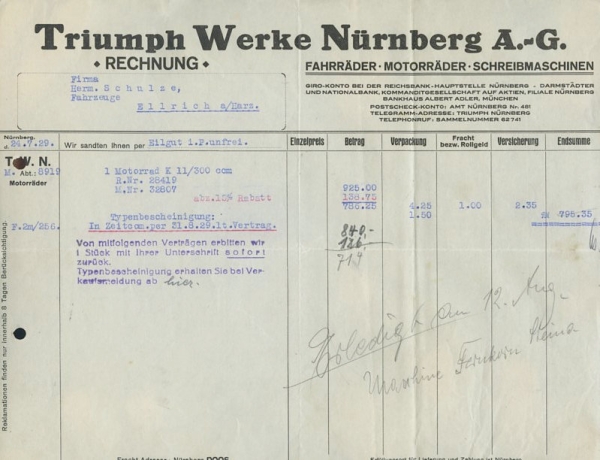 Triumph Werke Nürnberg A.-G.
• RECHNUNG •
FAHRRÄDER • MOTORRÄDER • SCHREIBMASCHINEN
GIRO-KONTO BEI DER REICHSBANK-HAUPTSTELLE NÜRNBERG - DARMSTÄDTER
UND NATIONALBANK, KOMMANDITGESELLSCHAFT AUF AKTIEN, FILIALE NÜRNBERG
BANKHAUS ALBERT ADLER, MÜNCHEN
POSTSCHECK-KONTO: AMT NÜRNBERG Nr. 481
TELEGRAMM-ADRESSE: TRIUMPH NÜRNBERG
TELEPHONRUF: SAMMELNUMMER 62741
Firma
Herm. Schulze,
Fahrzeuge
Ellrich a/Harz.
Nürnberg,
d. 24.7.29.
Wir sandten Ihnen per Eilgut i.F.unfrei.
Einzelpreis Betrag Verpackung Fracht bezw. Rollgeld Versicherung Endsumme
T. W. N.
M. Abt.: 8919
Motorräder
1 Motorrad K 11/300 ccm
R.Nr. 28419
M.Nr. 32807
925.00
abz.15% Rabatt
138.75
786.25 4.25 1.00 2.35
1.50 798.35
Typenbescheinigung:
F.2m/256. In Zeitcom.per 31.8.29.lt.Vertrag.
840,-
126.-
714
Von mitfolgenden Verträgen erbitten wir
1 Stück mit Ihrer Unterschrift sofort
zurück.
Typenbescheinigung erhalten Sie bei Ver-
kaufsmeldung ab hier.
Erledigt am 12. Aug.
Maschine
Reklamationen finden nur innerhalb 8 Tagen Berücksichtigung.